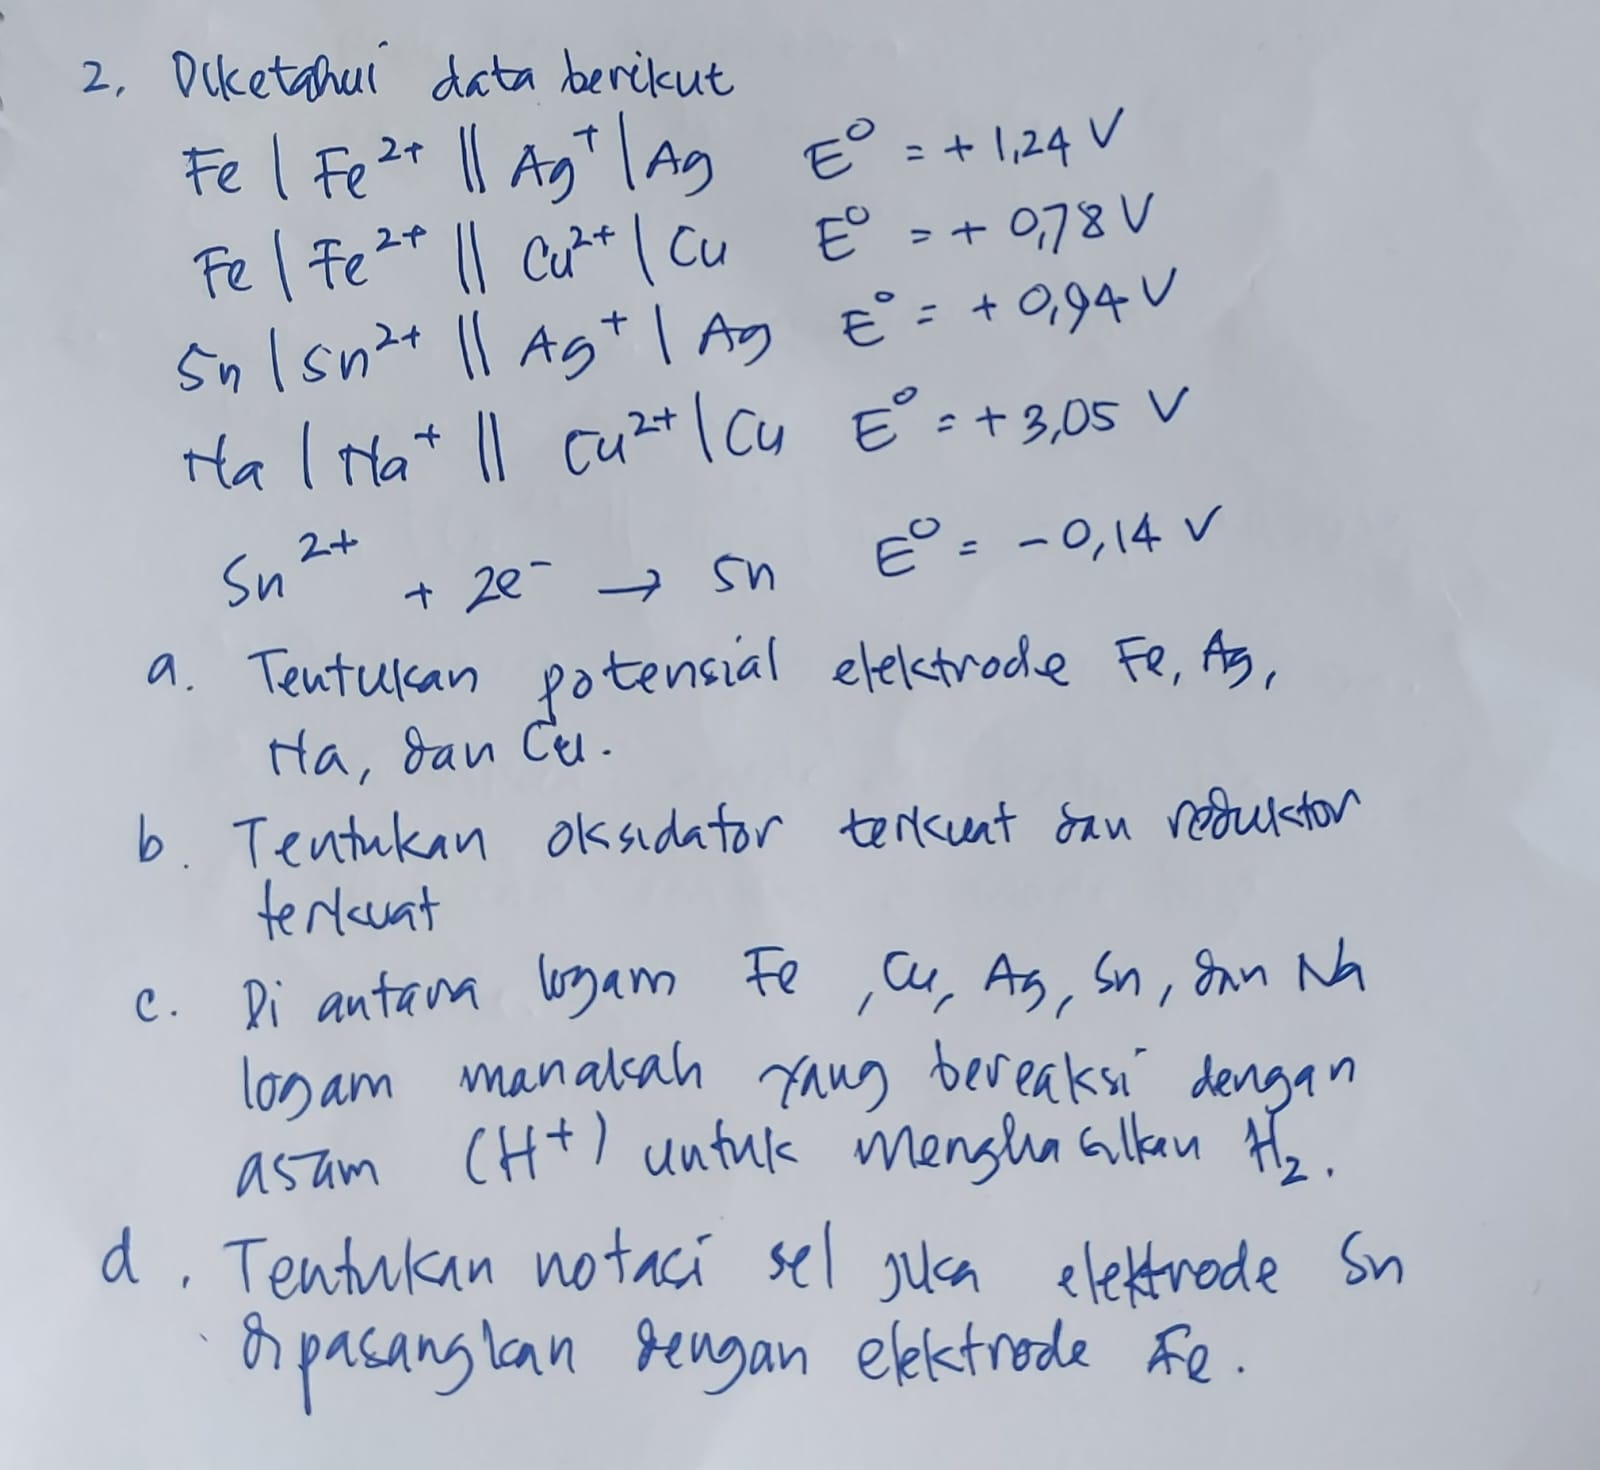 2. Diketahui data berikut
Fe | Fe²⁺ || Ag⁺ | Ag E⁰ = + 1,24 V
Fe | Fe²⁺ || Cu²⁺ | Cu E⁰ = + 0,78 V
Sn | Sn²⁺ || Ag⁺ | Ag E⁰ = + 0,94 V
Na | Na⁺ || Cu²⁺ | Cu E⁰ = + 3,05 V
Sn²⁺ + 2e⁻ → Sn E⁰ = - 0,14 V
a. Tentukan potensial elektrode Fe, Ag,
Na, dan Cu.
b. Tentukan oksidator terkuat dan reduktor
terkuat
c. Di antara logam Fe, Cu, Ag, Sn, dan Na
logam manakah yang bereaksi dengan
asam (H⁺) untuk menghasilkan H₂.
d. Tentukan notasi sel jika elektrode Sn
dipasangkan dengan elektrode Fe.